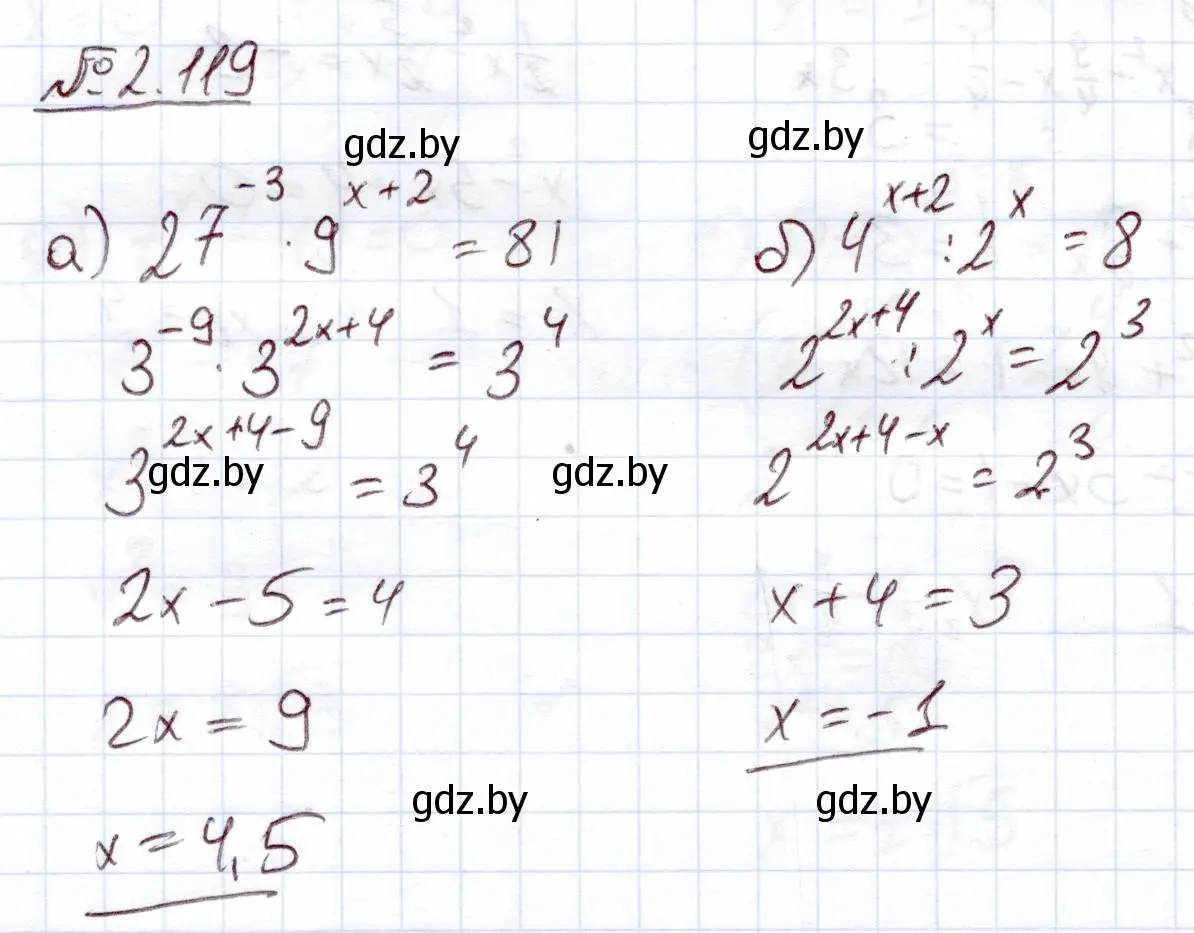 № 2.119
gdz.by gdz.by
а) 27^{-3} · 9^{x+2} = 81
3^{-9} · 3^{2x+4} = 3^4
3^{2x+4-9} = 3^4
gdz.by gdz.by
2x - 5 = 4
2x = 9
x = 4,5
б) 4^{x+2} : 2^x = 8
2^{2x+4} : 2^x = 2^3
2^{2x+4-x} = 2^3
x + 4 = 3
x = -1
gdz.by gdz.by